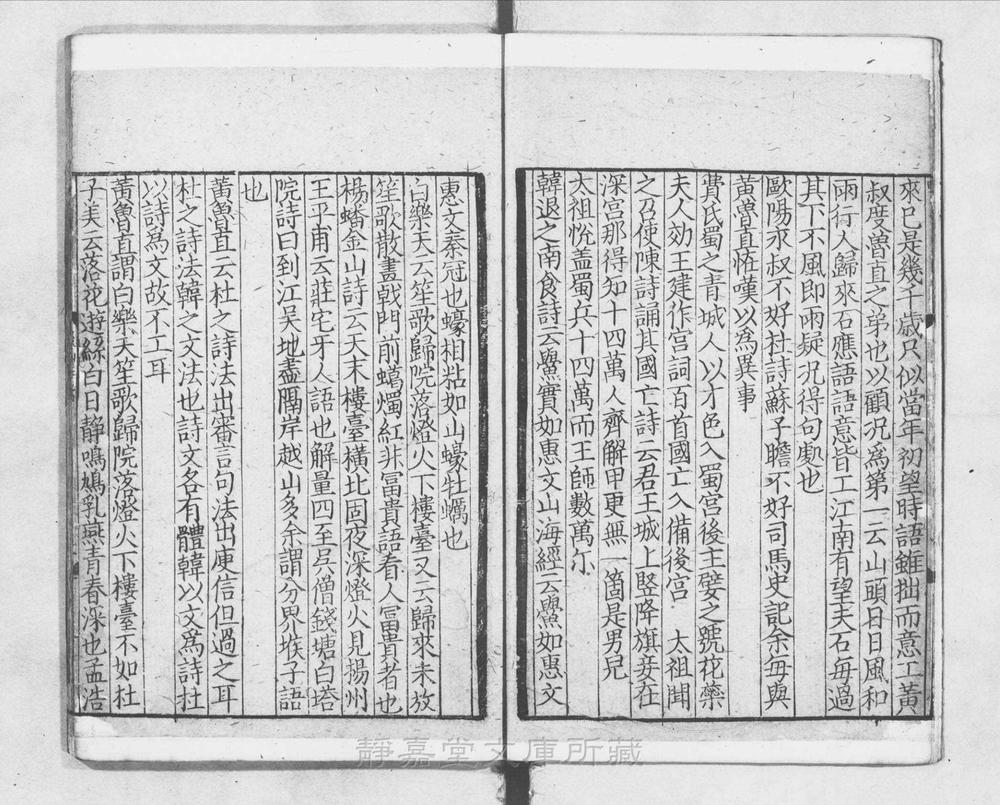 來已是幾千歲只似當年初望時語雖拙而意工黃
叔度魯直之弟也以顧況爲第一云山頭日日風和
雨行人歸來石應語語意皆工江南有望夫石每過
其下不風即雨疑況得句處也
歐陽永叔不好杜詩蘇子瞻不好司馬史記余每與
黃魯直恠嘆以爲異事
費氏蜀之青城人以才色入蜀宮後主嬖之號花蘂
夫人効王建作宮詞百首國亡入備後宮　太祖聞
之召使陳詩誦其國亡詩云君王城上竪降旗妾在
深宮那得知十四萬人齊解甲更無一箇是男兒
太祖恱盖蜀兵十四萬而王師數萬尓
韓退之南食詩云鱟實如惠文山海經云鱟如惠文
惠文秦冠也蠔相粘如山蠔牡蠣也
白樂天云笙歌歸院落燈火下樓臺又云歸來未放
笙歌散畫戟門前蠟燭紅非富貴語看人富貴者也
楊蟠金山詩云天末樓臺橫北固夜深燈火見揚州
王平甫云莊宅牙人語也解量四至吳僧錢塘白塔
院詩曰到江吳地盡隔岸越山多余謂分界堠子語
也
黃魯直云杜之詩法出審言句法出庾信但過之耳
杜之詩法韓之文法也詩文各有體韓以文爲詩杜
以詩爲文故不工耳
黃魯直謂白樂天笙歌歸院落燈火下樓臺不如杜
子美云落花遊絲白日静鳴鳩乳燕青春深也孟浩
靜嘉堂文庫所藏